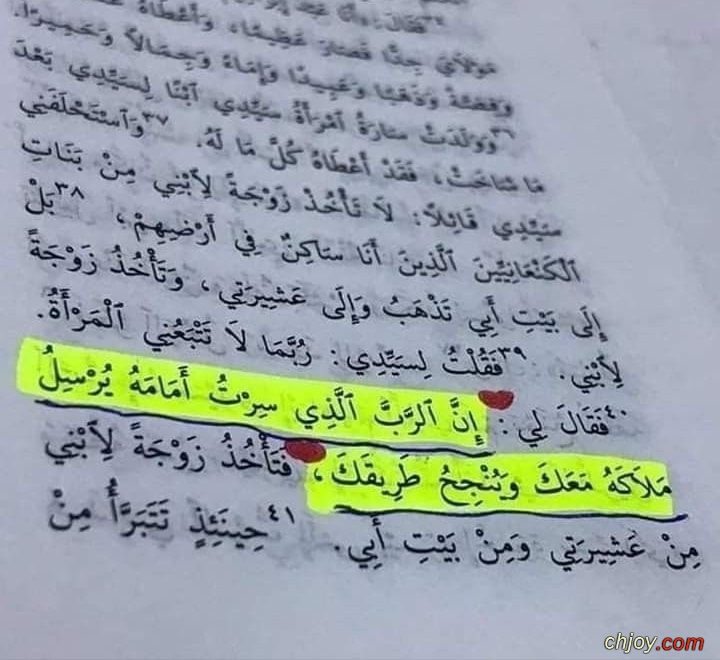 ٣٥ مَوْلَايَ جِدًّا فَصَارَ عَظِيمًا، وَأَعْطَاهُ
وَفِضَّةً وَذَهَبًا وَعَبِيدًا وَإِمَاءً وَجِمَالًا وَحَمِيرًا.
٣٦وَوَلَدَتْ سَارَةُ ٱمْرَأَةُ سَيِّدِي ٱبْنًا لِسَيِّدِي بَعْدَ
مَا شَاخَتْ، فَقَدْ أَعْطَاهُ كُلَّ مَا لَهُ. ٣٧وَٱسْتَحْلَفَنِي
سَيِّدِي قَائِلًا: لَا تَأْخُذْ زَوْجَةً لِٱبْنِي مِنْ بَنَاتِ
ٱلْكَنْعَانِيِّينَ ٱلَّذِينَ أَنَا سَاكِنٌ فِي أَرْضِهِمْ، ٣٨بَلْ
إِلَى بَيْتِ أَبِي تَذْهَبُ وَإِلَى عَشِيرَتِي، وَتَأْخُذُ زَوْجَةً
لِٱبْنِي. ٣٩فَقُلْتُ لِسَيِّدِي: رُبَّمَا لَا تَتْبَعُنِي ٱلْمَرْأَةُ.
٤٠فَقَالَ لِي: إِنَّ ٱلرَّبَّ ٱلَّذِي سِرْتُ أَمَامَهُ يُرْسِلُ
مَلَاكَهُ مَعَكَ وَيُنْجِحُ طَرِيقَكَ، فَتَأْخُذُ زَوْجَةً لِٱبْنِي
مِنْ عَشِيرَتِي وَمِنْ بَيْتِ أَبِي. ٤١حِينَئِذٍ تَتَبَرَّأُ مِنْ
chjoy.com